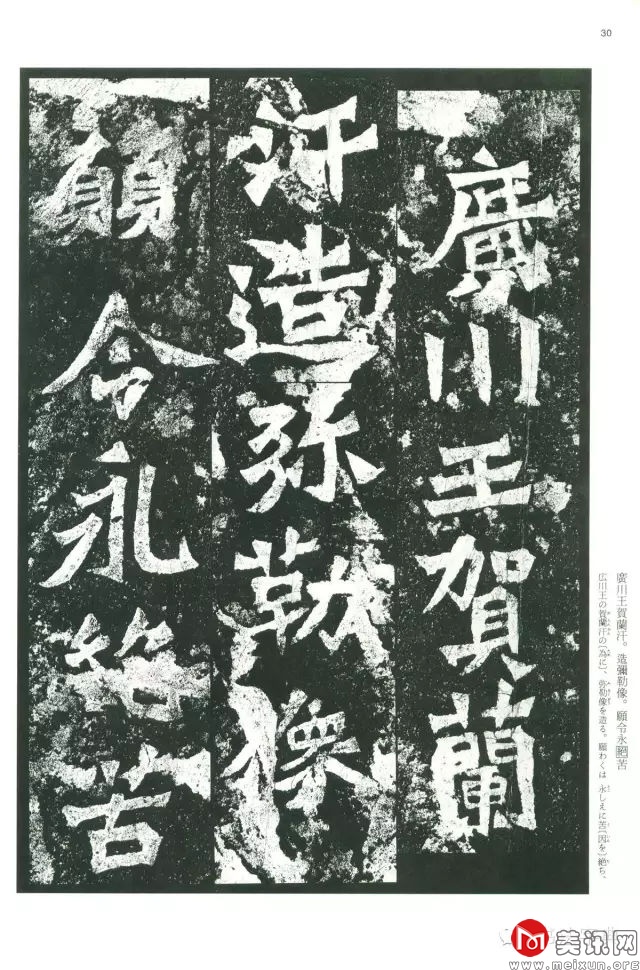 30
廣川王賀蘭
汗造弥勒像
願令永絕苦
廣川王賀蘭汗。造彌勒像。願令永絕苦
広川王の賀蘭汗の〔為に〕、弥勒像を造る。願わくは、永しえに苦〔因を〕絶ち、
美讯网
www.meixun.org